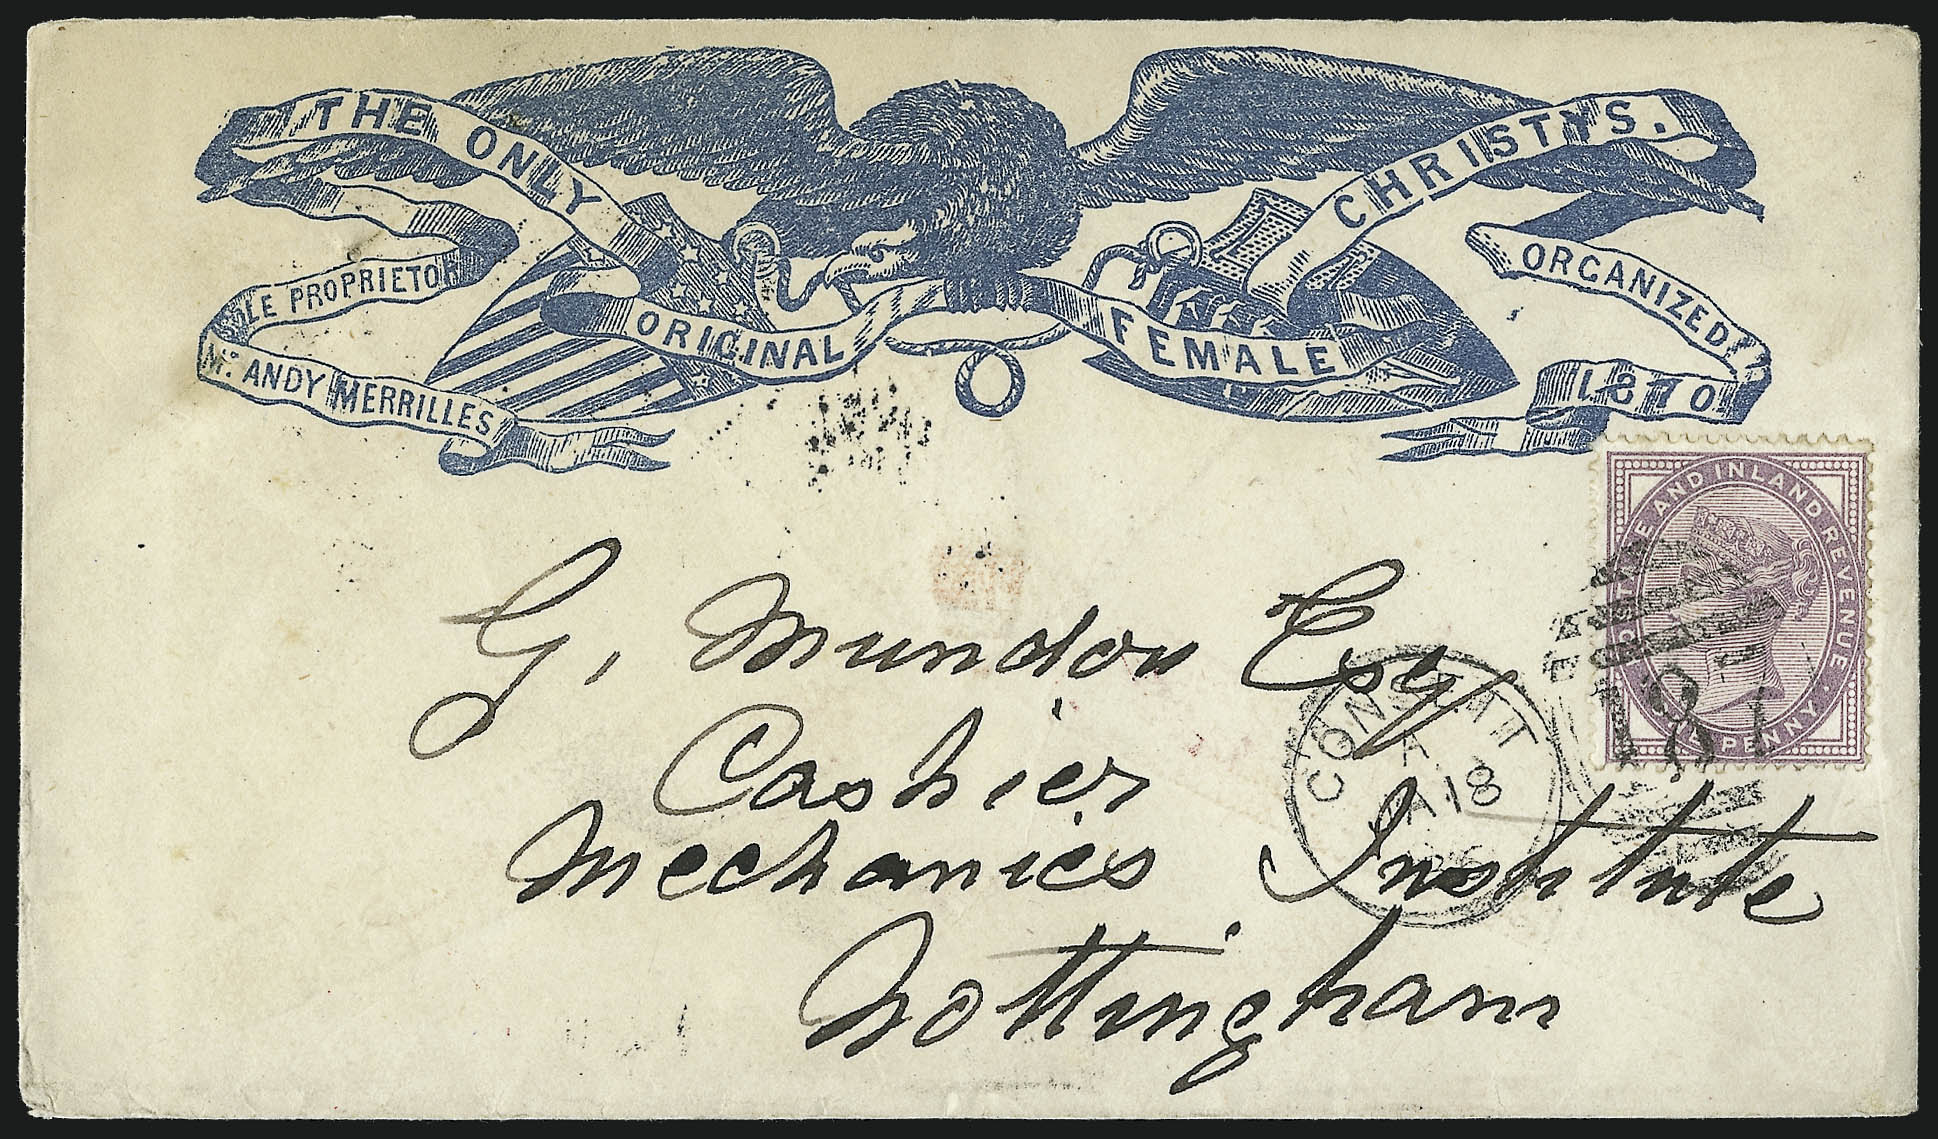 THE ONLY
ORIGINAL
FEMALE
CHRISTYS.
SOLE PROPRIETOR
Mr. ANDY MERRILLES
ORGANIZED
1870
POSTAGE AND INLAND REVENUE
ONE PENNY
187
CONSETT
A
JA 18
86
G. Mundon Esq
Cashier
Mechanics Institute
Nottingham